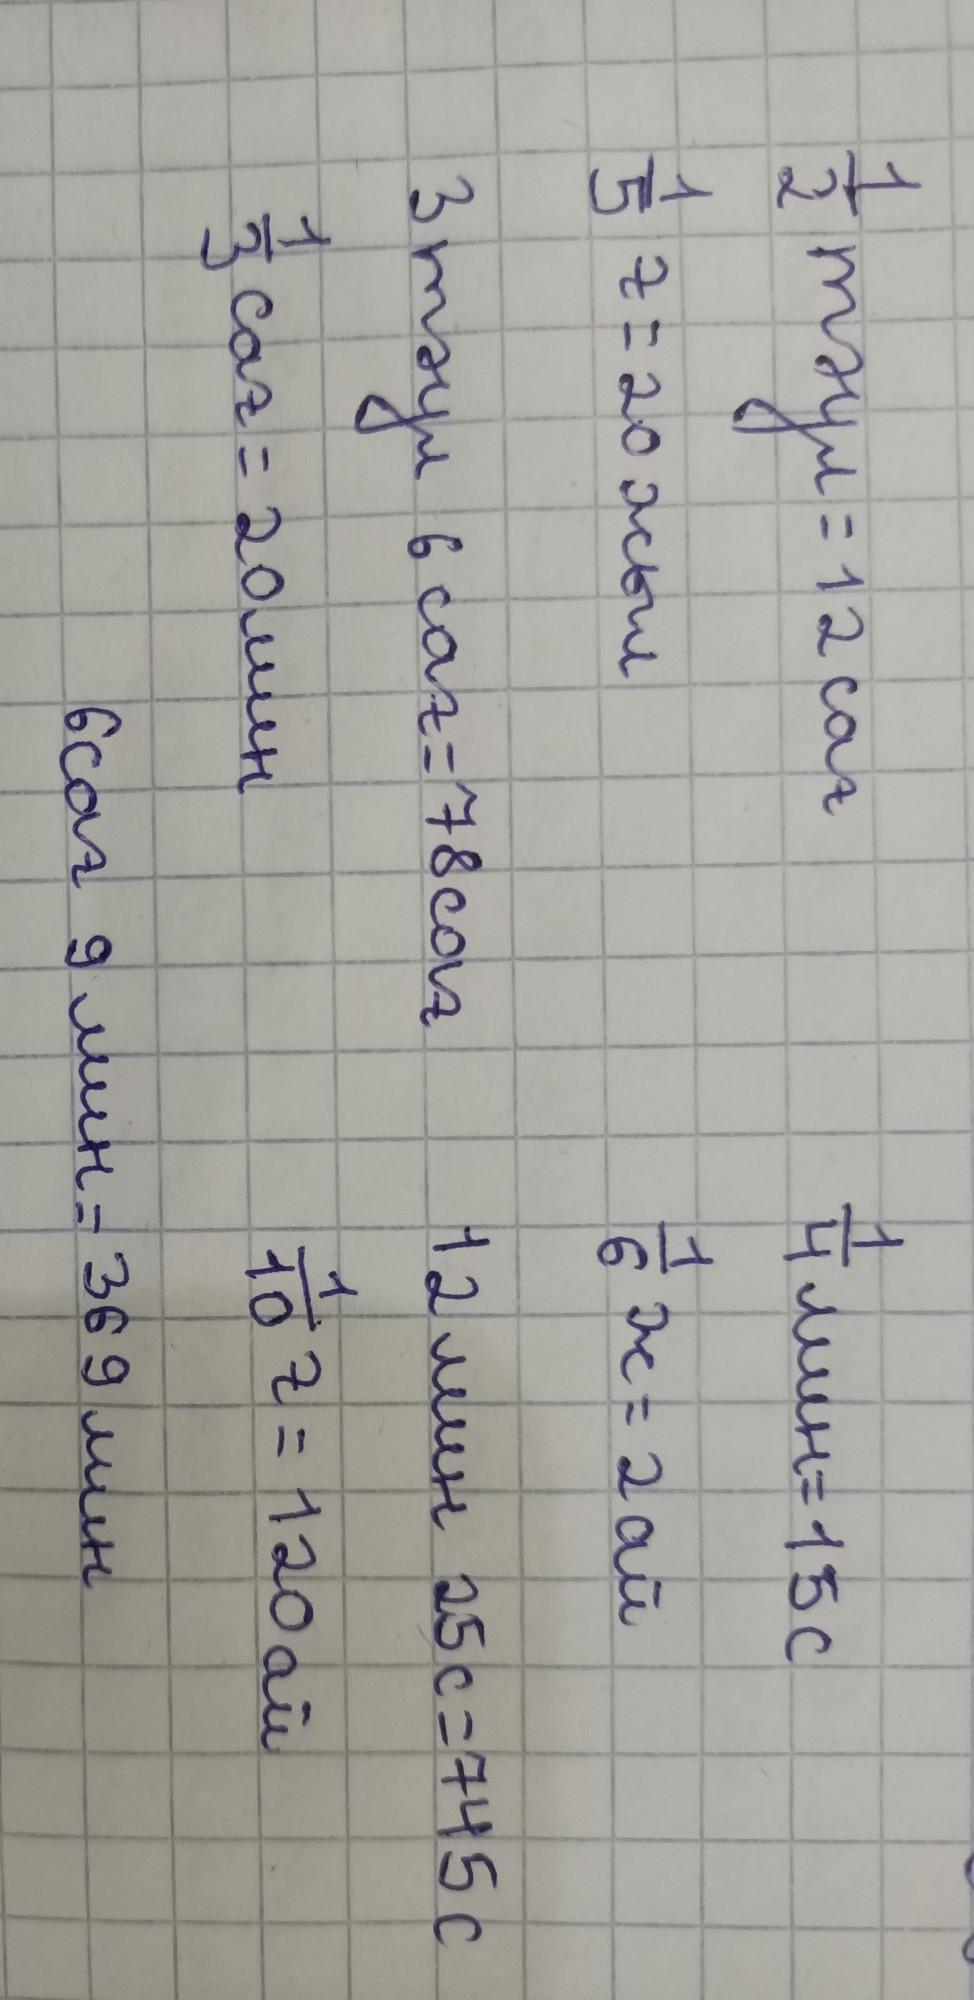 1/2 тәул = 12 сағ 1/4 мин = 15 с
1/5 ғ = 20 жыл 1/6 ж = 2 ай
3 тәул 6 сағ = 78 сағ 12 мин 25 с = 745 с
1/3 сағ = 20 мин 1/10 ғ = 120 ай
6 сағ 9 мин = 369 мин